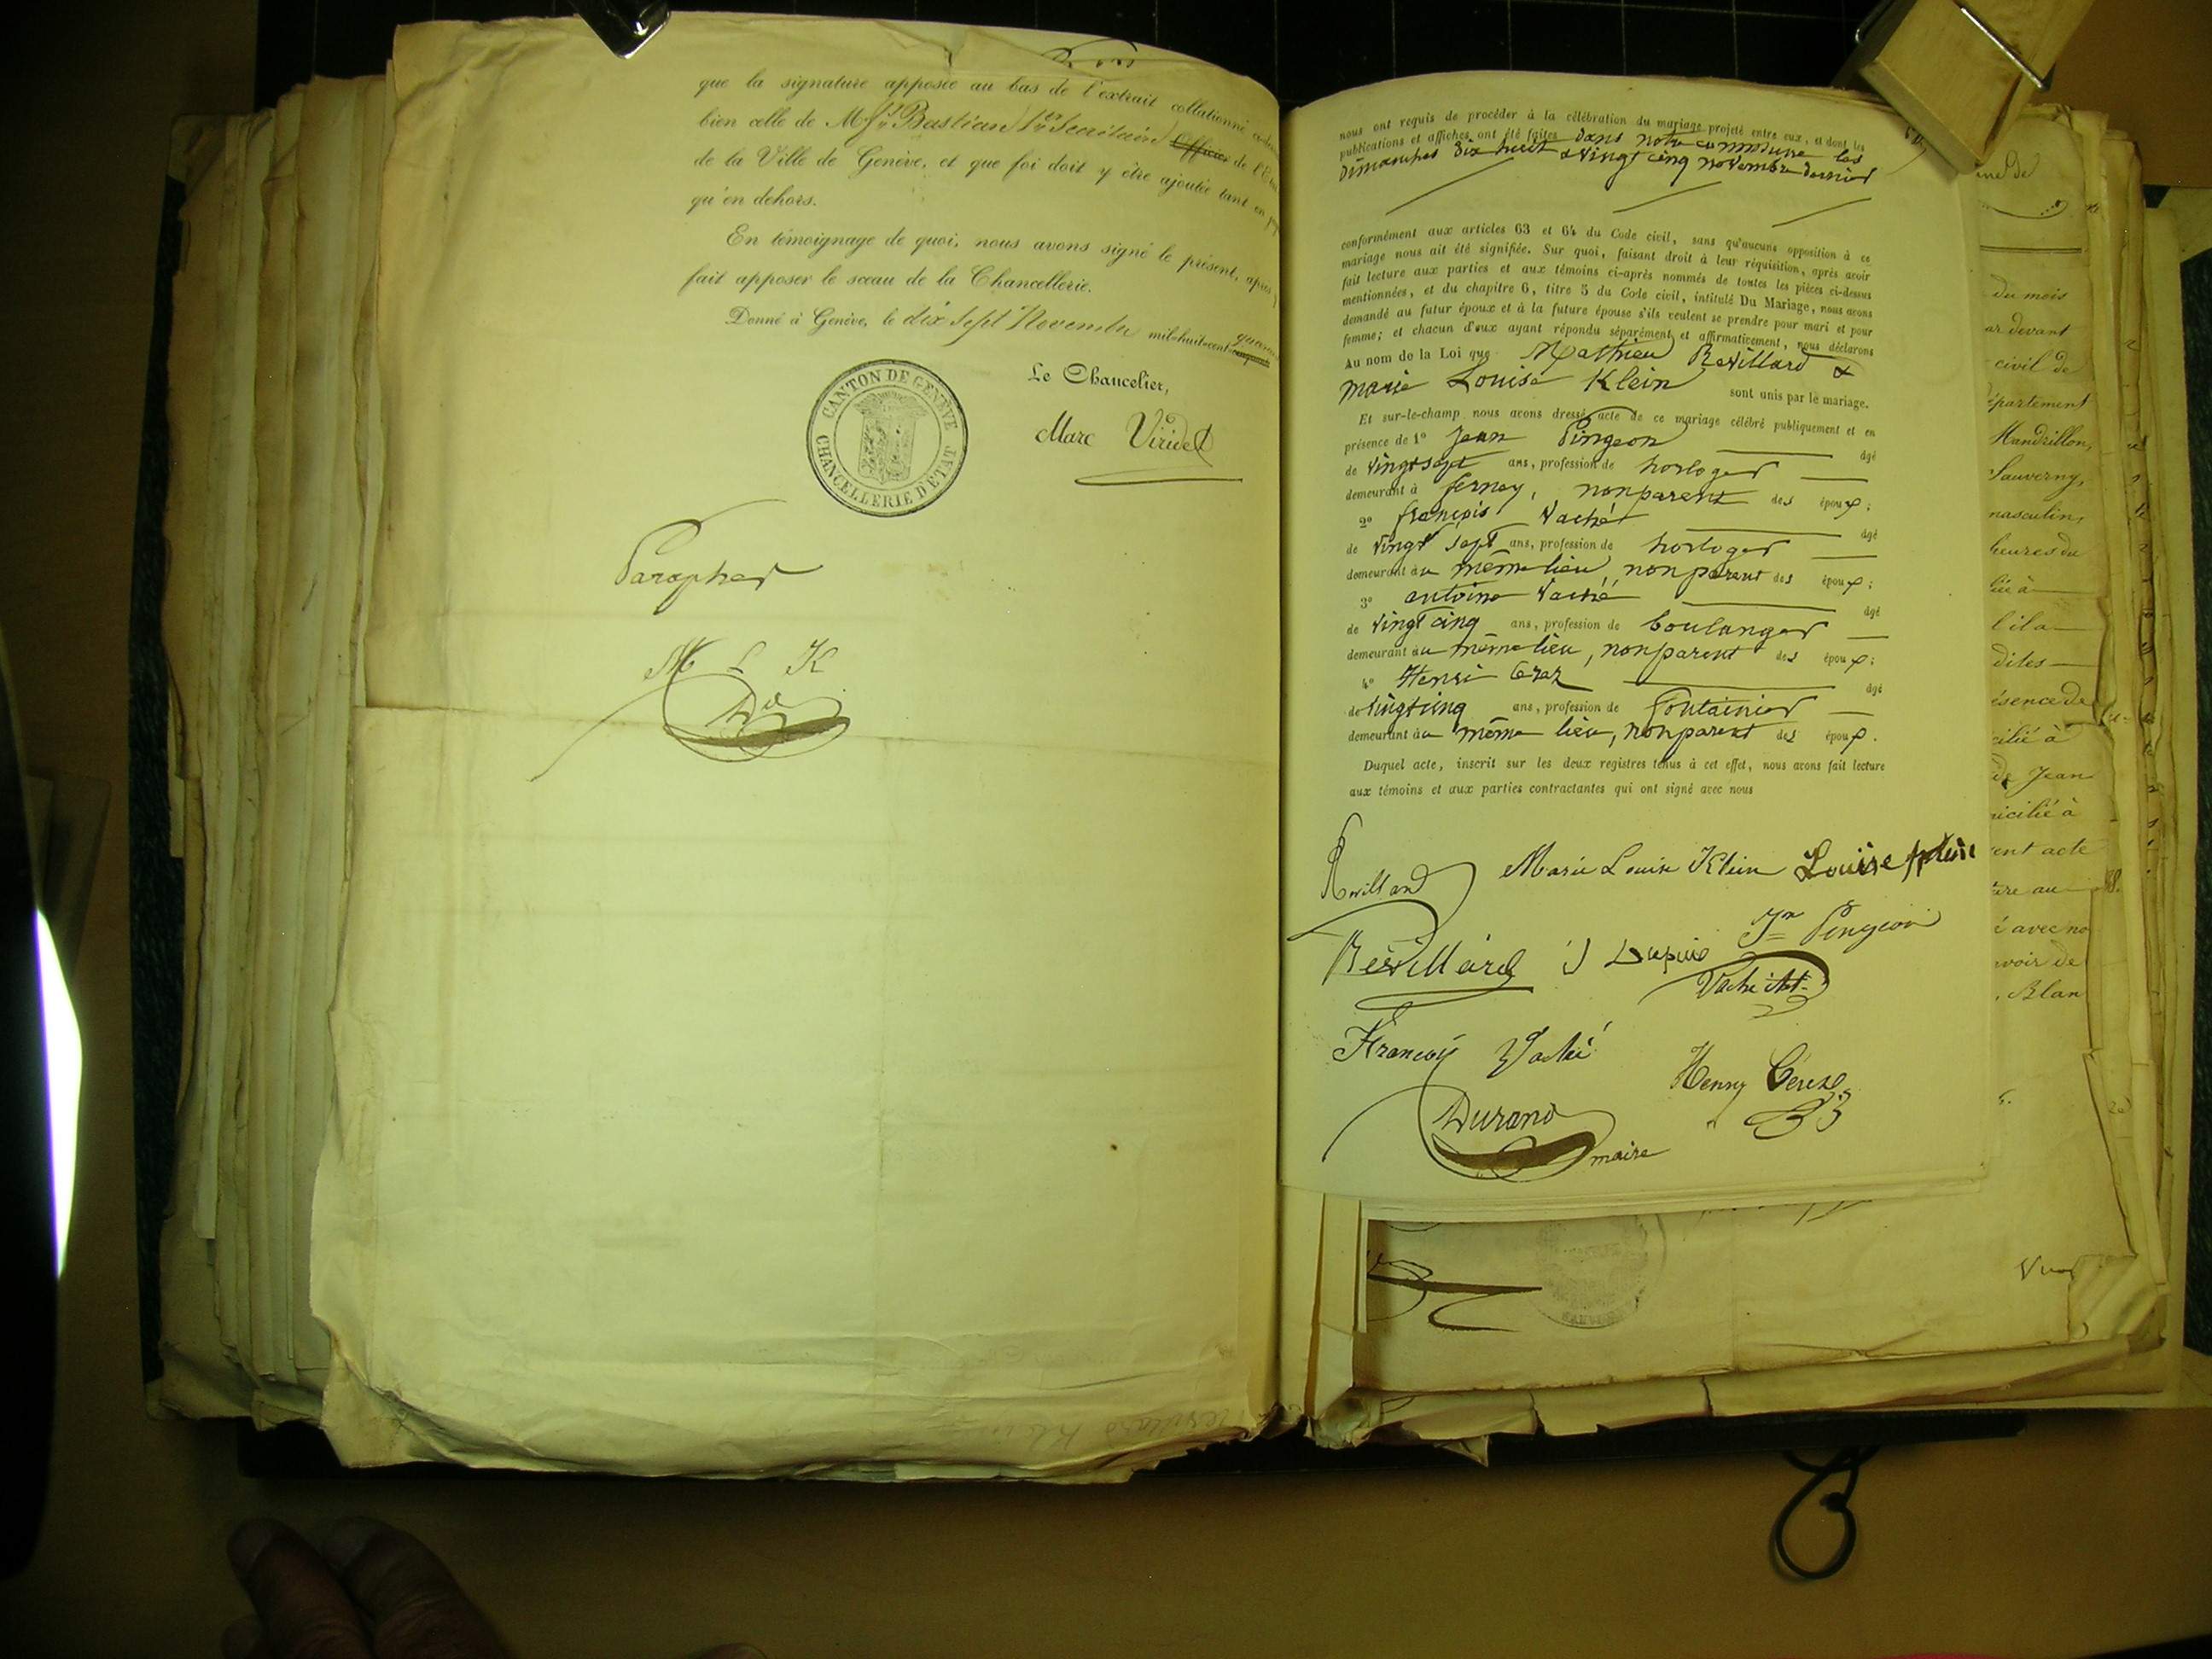 que la signature apposée au bas de l'extrait collationné
bien celle de M Bastian 1er Secrétaire Officier de l'
de la Ville de Genève, et que foi doit y être ajoutée tant en
qu'en dehors.
En témoignage de quoi, nous avons signé le présent, après
fait apposer le sceau de la Chancellerie.
Donné à Genève, le dix sept Novembre mil-huit-cent
Le Chancelier,
Marc Viridet
CANTON DE GENÈVE
CHANCELLERIE D'ÉTAT
Parapher
M L K
nous ont requis de procéder à la célébration du mariage projeté entre eux, et dont les
publications et affiches ont été faites dans notre commune les
dimanches dix huit & vingt cinq novembre dernier
conformément aux articles 63 et 64 du Code civil, sans qu'aucune opposition à ce
mariage nous ait été signifiée. Sur quoi, faisant droit à leur réquisition, après avoir
fait lecture aux parties et aux témoins ci-après nommés de toutes les pièces ci-dessus
mentionnées, et du chapitre 6, titre 5 du Code civil, intitulé Du Mariage, nous avons
demandé au futur époux et à la future épouse s'ils veulent se prendre pour mari et pour
femme; et chacun d'eux ayant répondu séparément et affirmativement, nous déclarons
Au nom de la Loi que Mathieu Revillard &
marie Louise Klein sont unis par le mariage.
Et sur-le-champ nous avons dressé acte de ce mariage célébré publiquement et en
présence de 1° Jean Pingeon âgé
de vingt sept ans, profession de horloger
demeurant à ferney, non parent des époux;
2° françois Vaché âgé
de vingt sept ans, profession de horloger
demeurant au même lieu non parent des époux;
3° antoine Vaché âgé
de vingt cinq ans, profession de boulanger
demeurant au même lieu, non parent des époux;
4° Henri âgé
de vingt cinq ans, profession de fontainier
demeurant au même lieu, non parent des époux.
Duquel acte, inscrit sur les deux registres tenus à cet effet, nous avons fait lecture
aux témoins et aux parties contractantes qui ont signé avec nous
Revillard Marie Louise Klein Louise
Jn Pingeon
Revillard J Dupuis
Vaché
François Vaché
Henry
Durand
maire
du mois
ar devant
civil de
épartement
Mandrillon,
Sauverny,
masculin,
heures du
lié à
dites
ésence de
cilié à
de Jean
nicilié à
ent acte
ure au
é avec no
voir de
, Blan